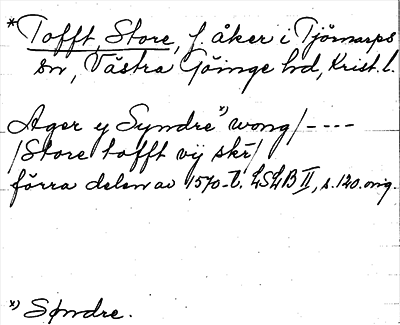 *Tofft, Store, f. åker i Tjörnarps
sn, Västra Göinge hd, Krist. l.
Ager y Syndre *) wong / ----
/ Store tofft vij skr̄ /
förra delen av 1570-t. LSLB II, s. 120. orig.
*) Søndre.